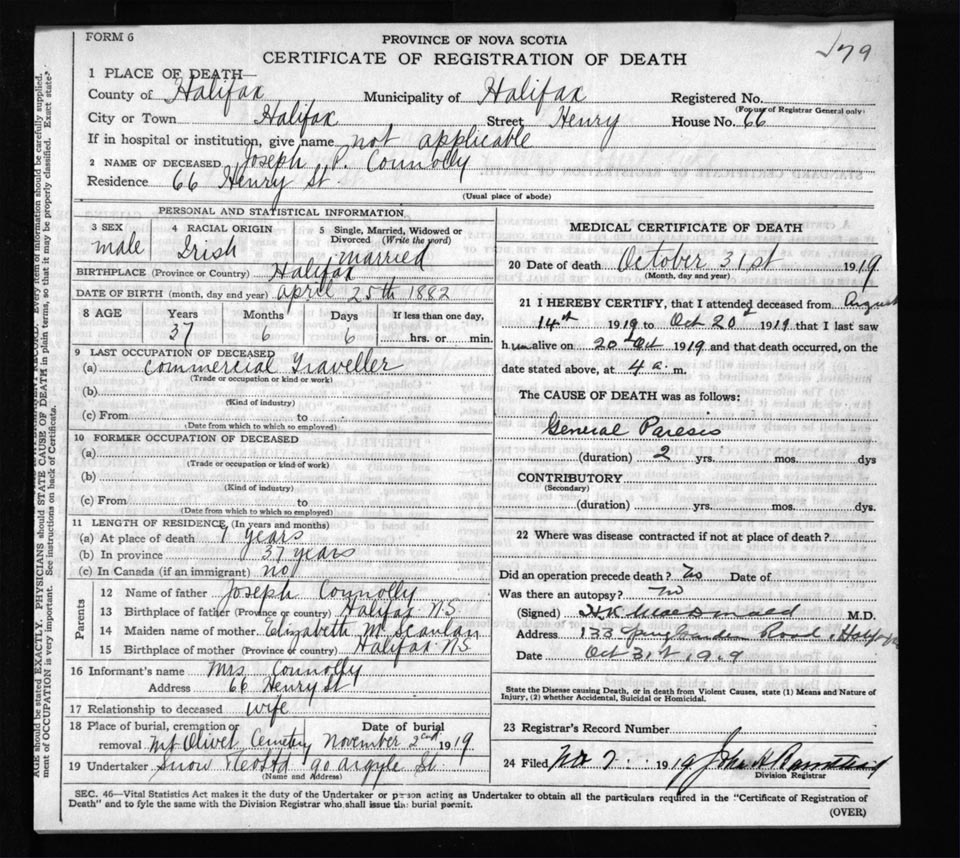 FORM 6
179
PROVINCE OF NOVA SCOTIA
CERTIFICATE OF REGISTRATION OF DEATH
1 PLACE OF DEATH—
County of Halifax Municipality of Halifax Registered No.
(For use of Registrar General only)
City or Town Halifax Street Henry House No. 66
If in hospital or institution, give name not applicable
2 NAME OF DECEASED Joseph P. Connolly
Residence 66 Henry St
(Usual place of abode)
PERSONAL AND STATISTICAL INFORMATION
3 SEX male
4 RACIAL ORIGIN Irish
5 Single, Married, Widowed or Divorced (Write the word) married
BIRTHPLACE (Province or Country) Halifax
DATE OF BIRTH (month, day and year) april 25th 1882
8 AGE Years Months Days If less than one day,
37 6 6 hrs. or min.
9 LAST OCCUPATION OF DECEASED
(a) Commercial Traveller
(Trade or occupation or kind or work)
(b)
(Kind of industry)
(c) From to
(Date from which to which so employed)
10 FORMER OCCUPATION OF DECEASED
(a)
(Trade or occupation or kind of work)
(b)
(Kind of industry)
(c) From to
(Date from which to which so employed)
11 LENGTH OF RESIDENCE (In years and months)
(a) At place of death 7 years
(b) In province 37 years
(c) In Canada (if an immigrant) no
Parents
12 Name of father Joseph Connolly
13 Birthplace of father (Province or country) Halifax N.S.
14 Maiden name of mother Elizabeth M. Scanlan
15 Birthplace of mother (Province or country) Halifax N.S
16 Informant's name Mrs Connolly
Address 66 Henry St
17 Relationship to deceased wife
18 Place of burial, cremation or Date of burial
removal Mt Olivet Cemetery November 2nd 1919
19 Undertaker Snow & Co Ltd 90 Argyle St
(Name and Address)
MEDICAL CERTIFICATE OF DEATH
20 Date of death October 31st 1919
(Month, day and year)
21 I HEREBY CERTIFY, that I attended deceased from August
14th 1919 to Oct 20 1919 that I last saw
him alive on 20 Oct 1919 and that death occurred, on the
date stated above, at 4 a. m.
The CAUSE OF DEATH was as follows:
General Paresis
(duration) 2 yrs. mos. dys
CONTRIBUTORY
(Secondary)
(duration) yrs. mos. dys.
22 Where was disease contracted if not at place of death?
Did an operation precede death? No Date of
Was there an autopsy? no
(Signed) H K MacDonald M.D.
Address 133 Road, Halifax
Date Oct 31st 1919
State the Disease causing Death, or in death from Violent Causes, state (1) Means and Nature of
Injury, (2) whether Accidental, Suicidal or Homicidal.
23 Registrar's Record Number
24 Filed 1919 John
Division Registrar
SEC. 46—Vital Statistics Act makes it the duty of the Undertaker or person acting as Undertaker to obtain all the particulars required in the "Certificate of Registration of
Death" and to fyle the same with the Division Registrar who shall issue the burial permit.
(OVER)
AGE should be stated EXACTLY. PHYSICIANS should STATE CAUSE OF DEATH in plain terms, so that it may be properly classified. Exact state-
ment of OCCUPATION is very important. See instructions on back of Certificate.
RECORD. Every item of information should be carefully supplied.